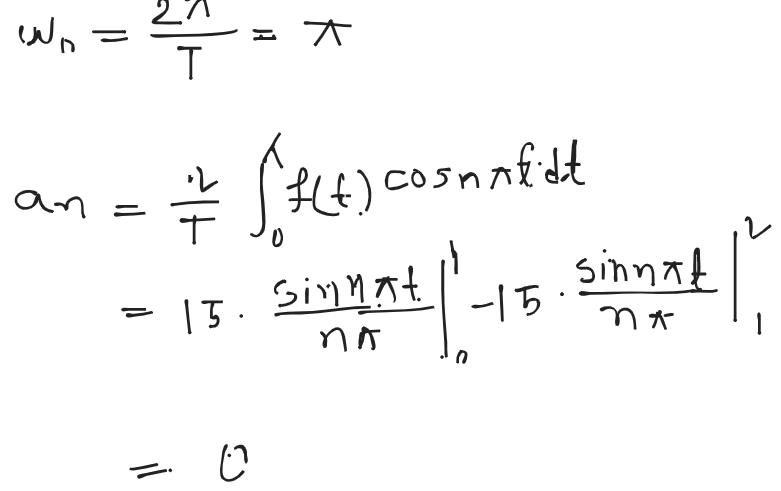 ωn = 2π/T = π
an = 2/T ∫₀^λ f(t) cos nπt·dt
= 15 · sin nπt/nπ |₀¹ − 15 · sin nπt/nπ |₁²
= 0